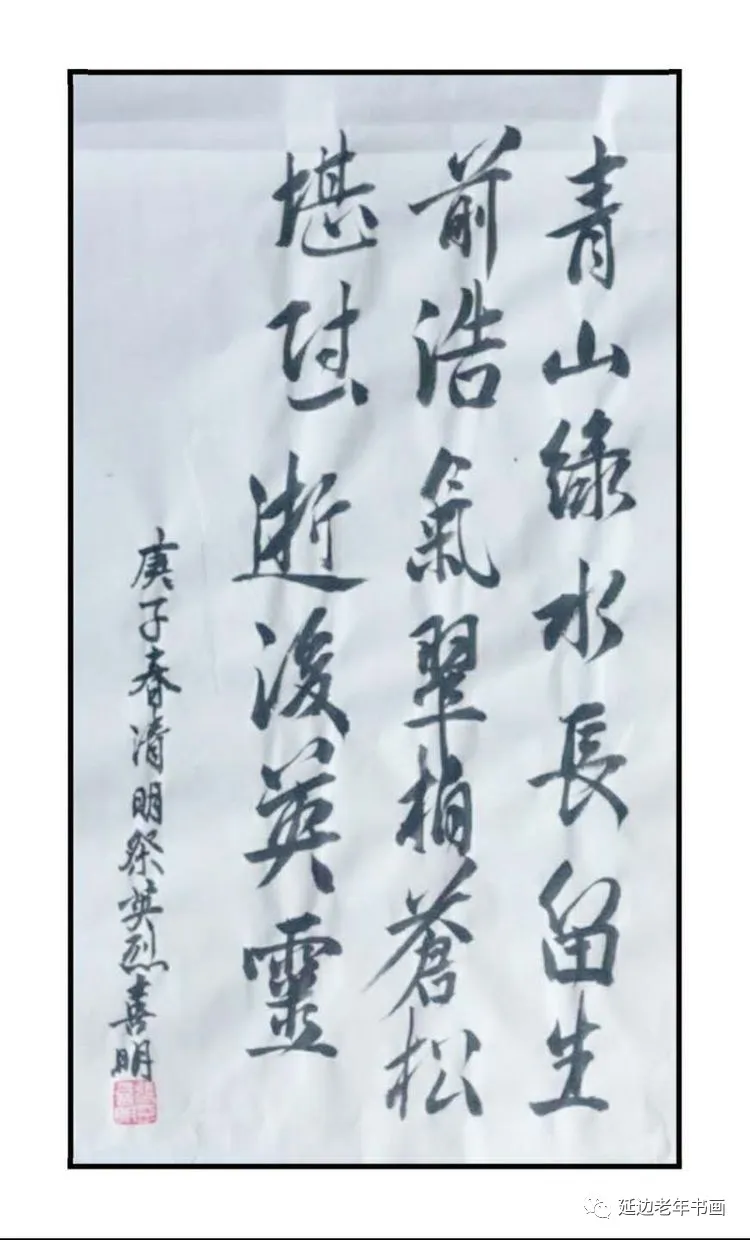 青山綠水長留生
前浩氣翠柏蒼松
堪慰逝後英靈
庚子春清明祭英烈喜明
延边老年书画